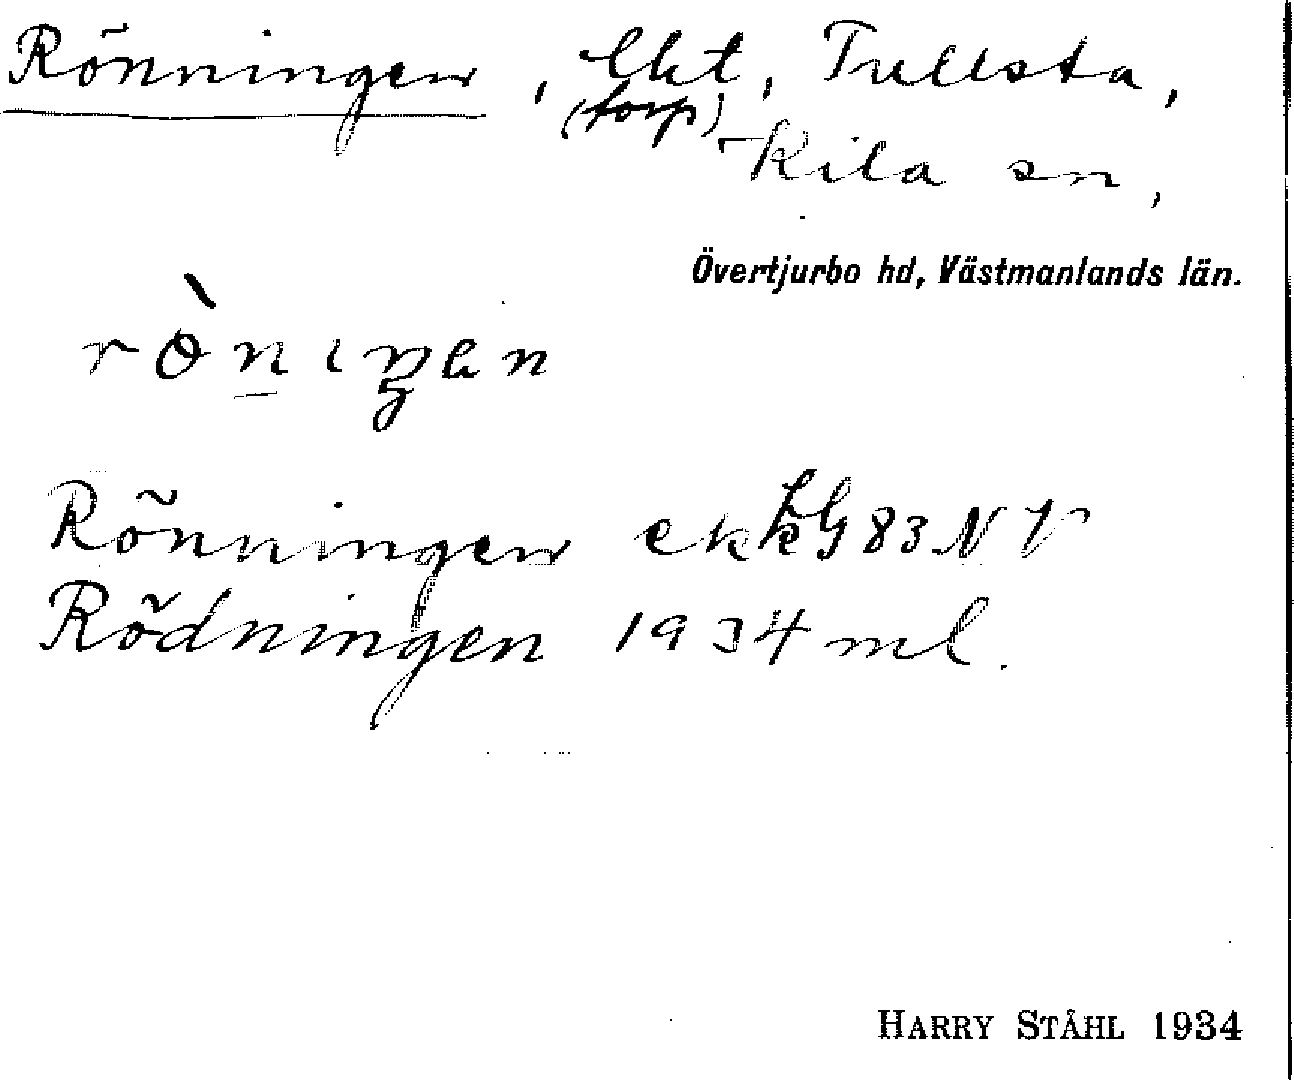 Rönningen, lht, Tullsta,
(torp)
Kila sn,
Övertjurbo hd, Västmanlands län.
Rönningen ekkG83NV
Rödningen 1934 ml.
HARRY STÅHL 1934